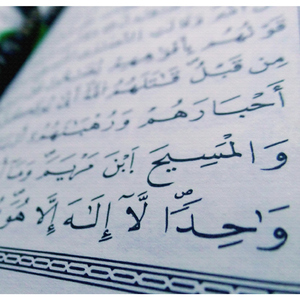 قَوْلُهُم بِأَفْوَٰهِهِمْ
مِن قَبْلُ قَٰتَلَهُمُ ٱللَّهُ
أَحْبَارَهُمْ وَرُهْبَٰنَهُمْ
وَٱلْمَسِيحَ ٱبْنَ مَرْيَمَ وَمَآ
وَٰحِدًا لَّآ إِلَٰهَ إِلَّا هُوَ